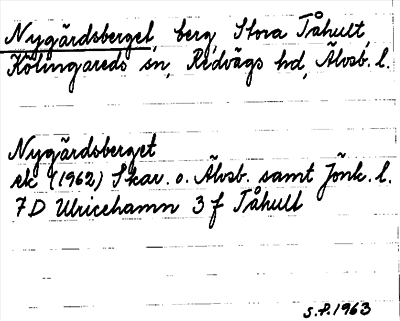 Nygärdsberget, berg, Stora Tåhult,
Kölingareds sn, Redvägs hd, Älvsb. l.
Nygärdsberget
ek (1962) Skar. o. Älvsb. samt Jönk. l.
7D Ulricehamn 3 f Tåhult
S.P. 1963